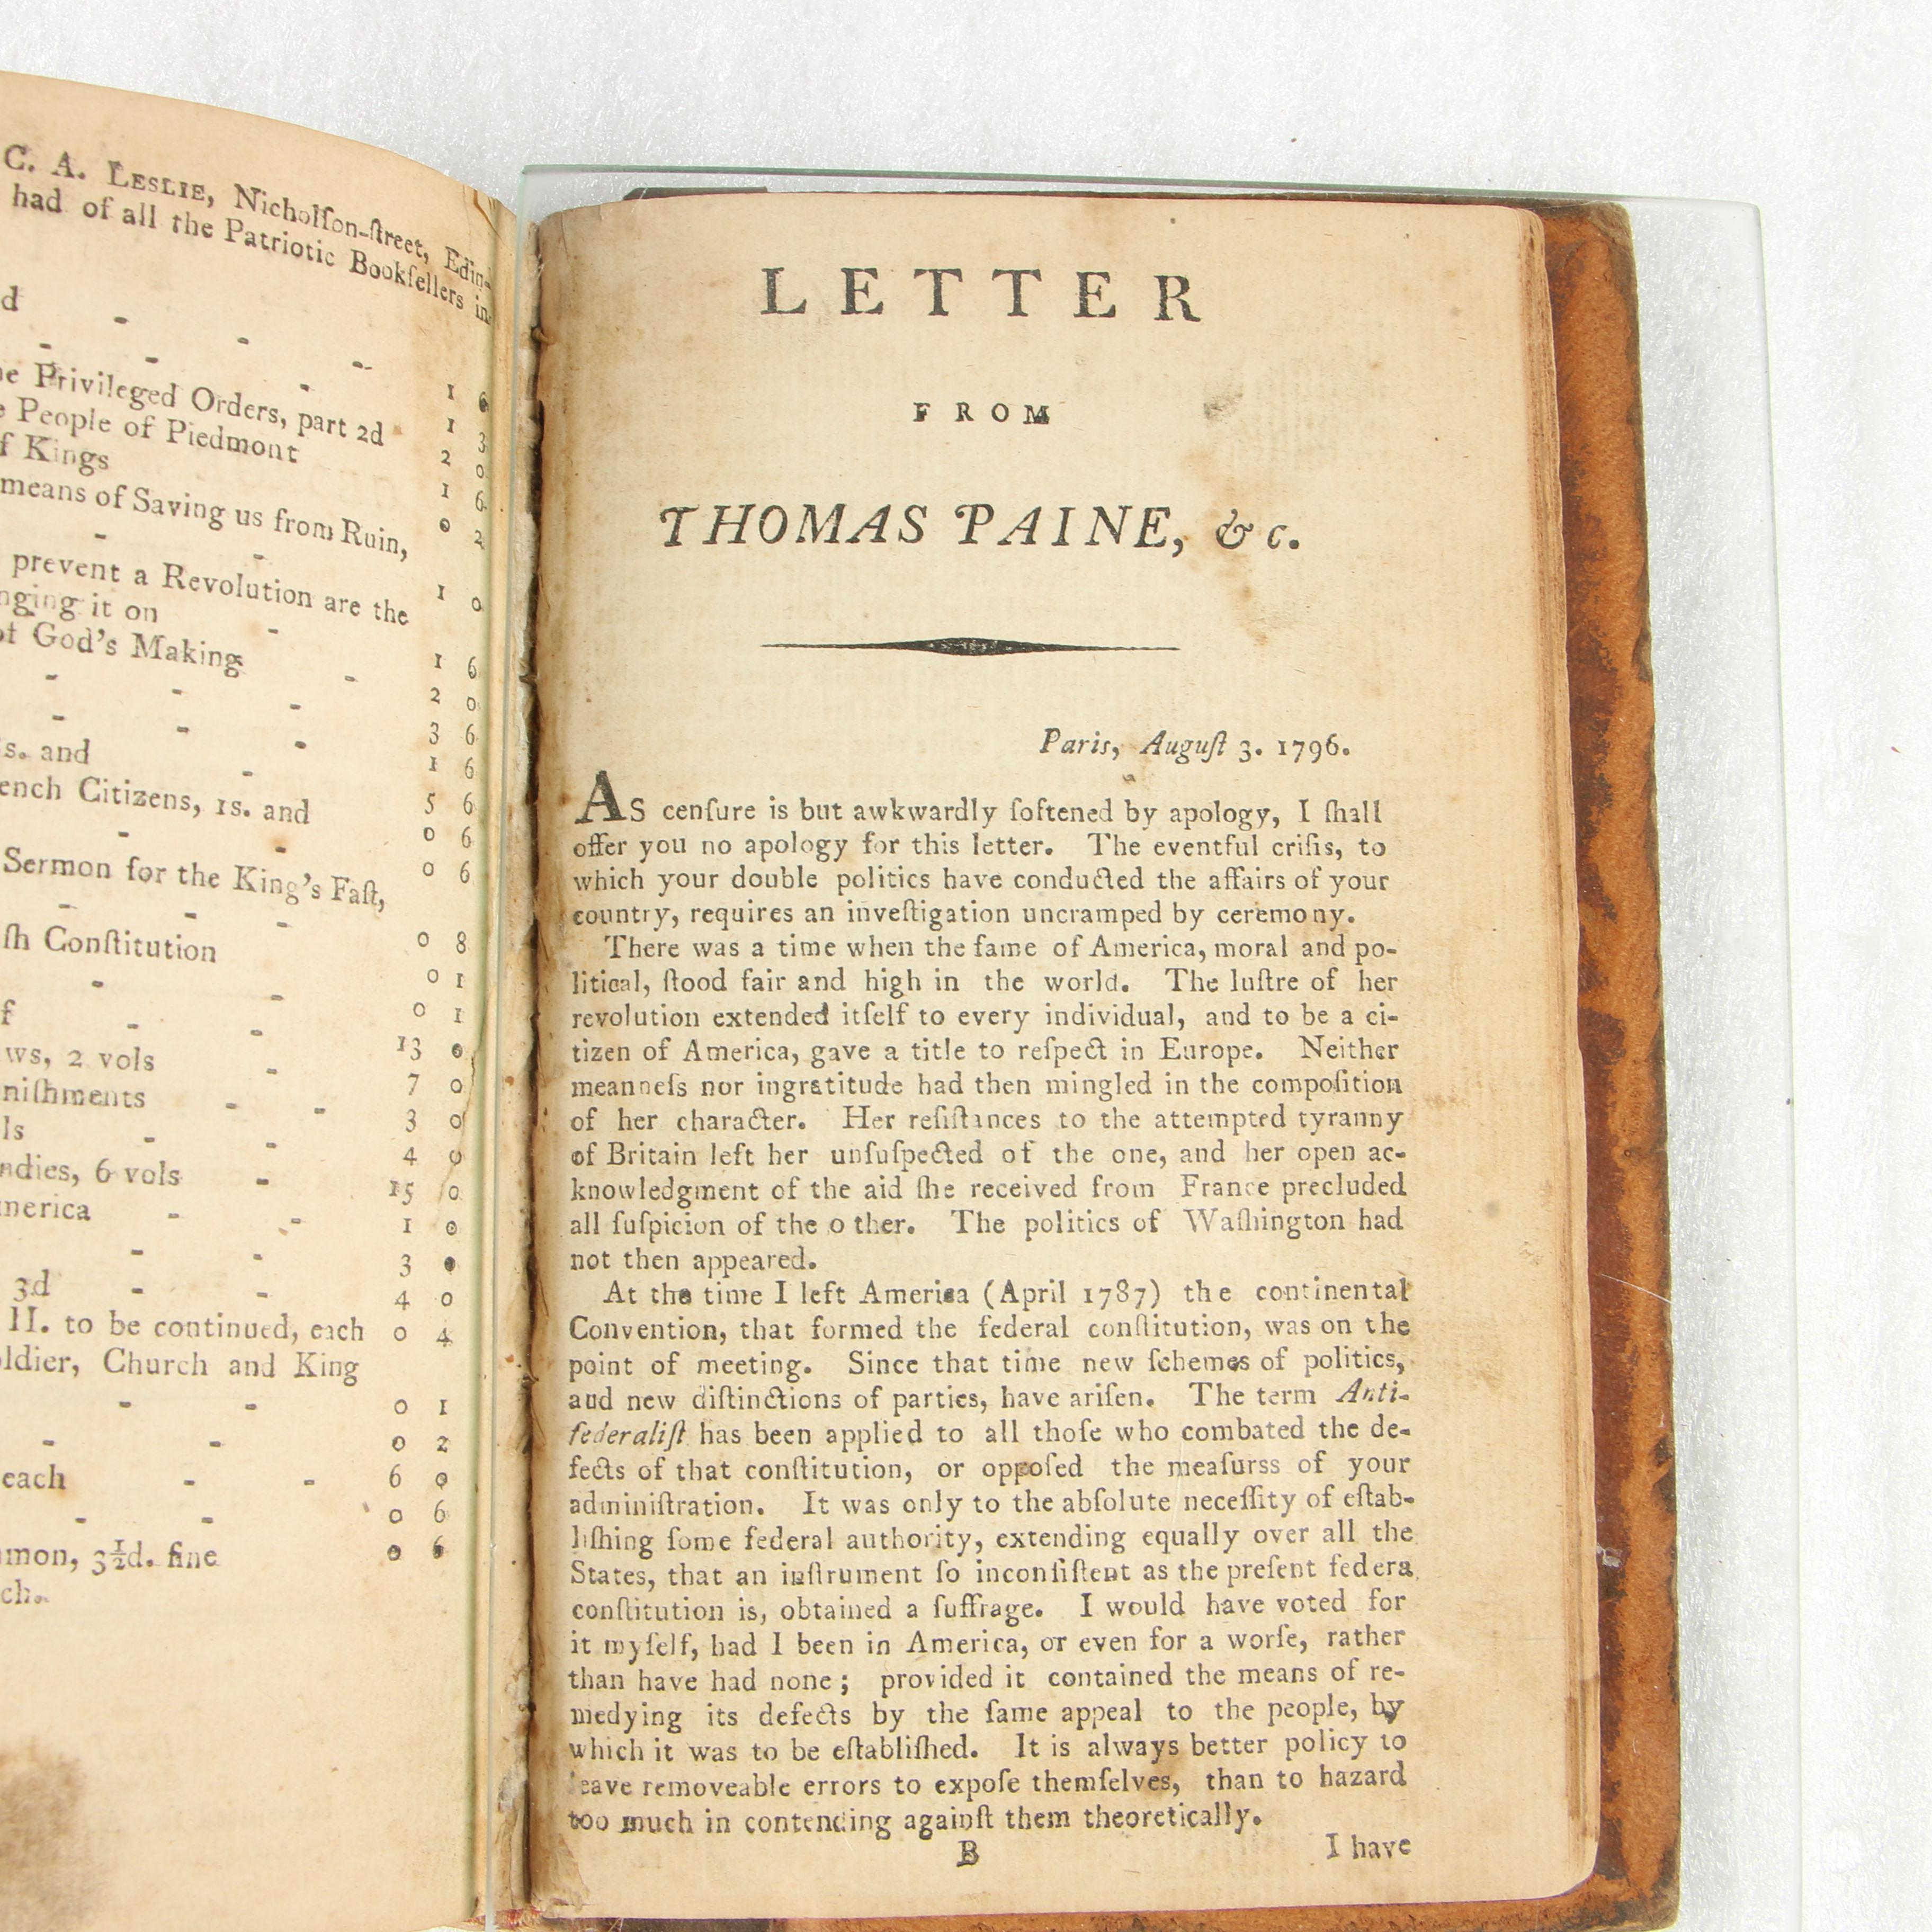 C. A. LESLIE, Nicholſon-ſtreet, Edin-
had of all the Patriotic Bookſellers in
d - - -
- - -
1 6
Privileged Orders, part 2d - 1 3
People of Piedmont 2 0
Kings 1 6
means of Saving us from Ruin, 0 2
- -
prevent a Revolution are the 1 0
it on -
God's Making - 1 6
- - - 2 0
- - - 3 6
s. and - 1 6
Citizens, 1s. and 5 6
- - 0 6
Sermon for the King's Faſt, 0 6
- - -
Conſtitution 0 8
- - 0 1
- - 0 1
2 vols - 13 0
- - 7 0
- - 3 0
6 vols - 4 0
- - 15 0
- - 1 0
3d - - 3 0
4 0
II. to be continued, each 0 4
Church and King
- - 0 1
- - 0 2
each - - 6 0
- - 0 6
3½d. fine 0 6
LETTER
FROM
THOMAS PAINE, &c.
Paris, Auguſt 3. 1796.
As cenſure is but awkwardly ſoftened by apology, I ſhall
offer you no apology for this letter. The eventful criſis, to
which your double politics have conducted the affairs of your
country, requires an inveſtigation uncramped by ceremony.
There was a time when the fame of America, moral and po-
litical, ſtood fair and high in the world. The luſtre of her
revolution extended itſelf to every individual, and to be a ci-
tizen of America, gave a title to reſpect in Europe. Neither
meanneſs nor ingratitude had then mingled in the compoſition
of her character. Her reſiſtances to the attempted tyranny
of Britain left her unſuſpected of the one, and her open ac-
knowledgment of the aid ſhe received from France precluded
all ſuſpicion of the o ther. The politics of Waſhington had
not then appeared.
At the time I left America (April 1787) the continental
Convention, that formed the federal conſtitution, was on the
point of meeting. Since that time new ſchemes of politics,
aud new diſtinctions of parties, have ariſen. The term Anti-
federaliſt has been applied to all thoſe who combated the de-
fects of that conſtitution, or oppoſed the meaſurss of your
adminiſtration. It was only to the abſolute neceſſity of eſtab-
liſhing ſome federal authority, extending equally over all the
States, that an inſtrument ſo inconſiſtent as the preſent federa
conſtitution is, obtained a ſuffrage. I would have voted for
it myſelf, had I been in America, or even for a worſe, rather
than have had none; provided it contained the means of re-
medying its defects by the ſame appeal to the people, by
which it was to be eſtabliſhed. It is always better policy to
leave removeable errors to expoſe themſelves, than to hazard
too much in contending againſt them theoretically.
B I have